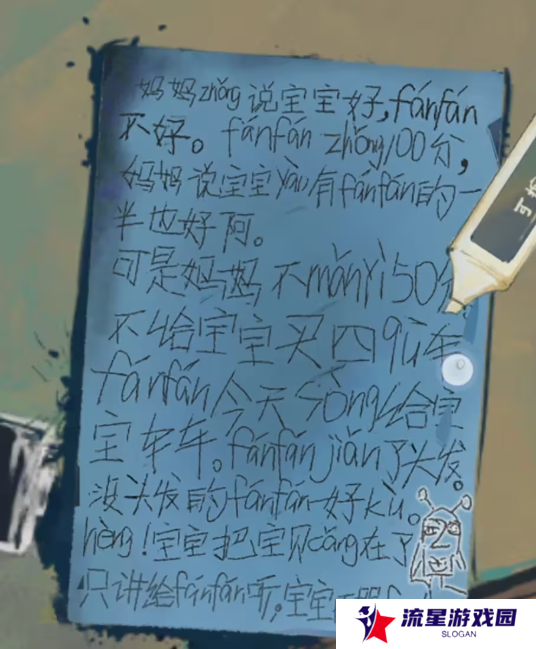 妈妈zhǒng说宝宝好,fánfán
不好。fánfán zhǒng100分,
妈妈说宝宝yào有fánfán的一
半也好阿。
可是妈妈不mǎnyì50分
不给宝宝买四qū车
fánfán今天sòng给宝
宝车车。fánfán jiǎn了头发。
没头发的fánfán好kù。
hèng!宝宝把宝贝cáng在了
只讲给fánfán听,宝宝
流星游戏园
SLOGAN